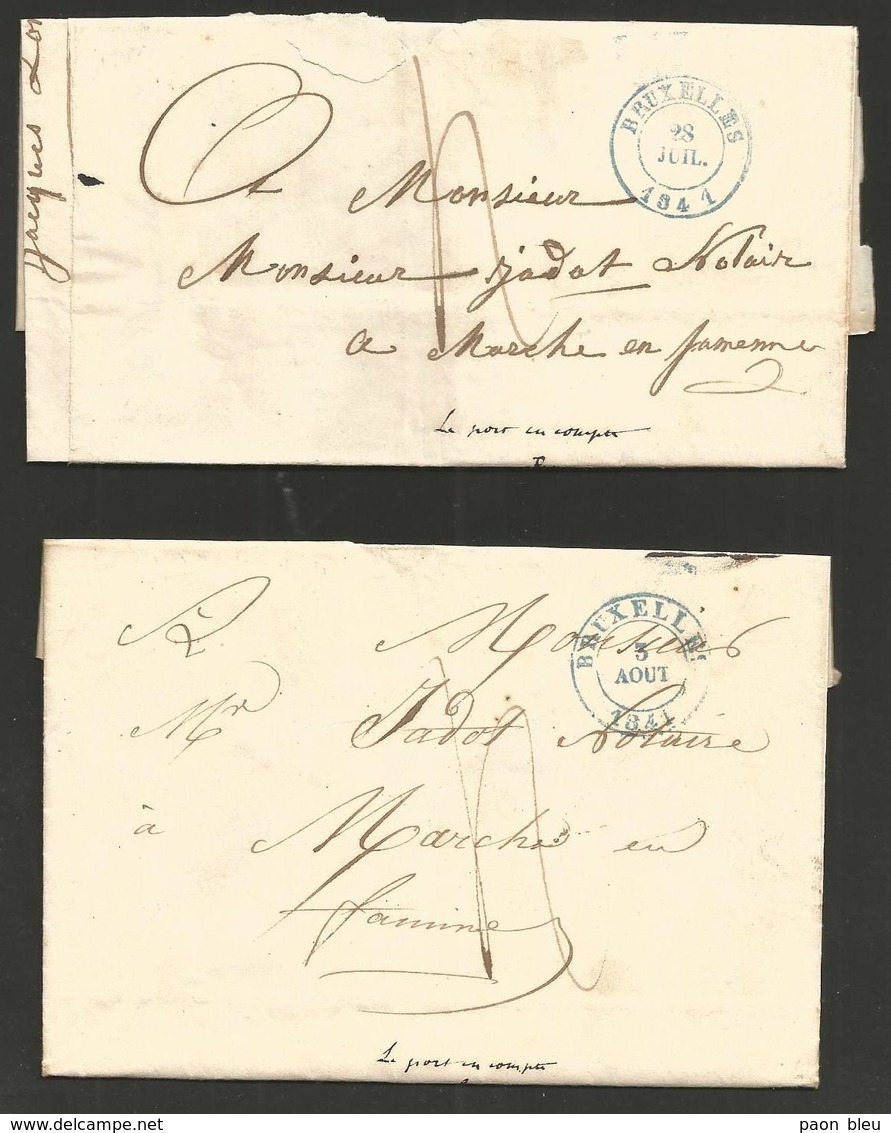 Jacques
BRUXELLES
28
JUIL.
1841
A Monsieur
Monsieur Jadot Notair
a Marche en famenne
Le port en compte
BRUXELLES
3
AOUT
1841
A Monsieur
Mr Jadot Notaire
à Marche en
famine
Le port en compte
delcampe.net
paon bleu